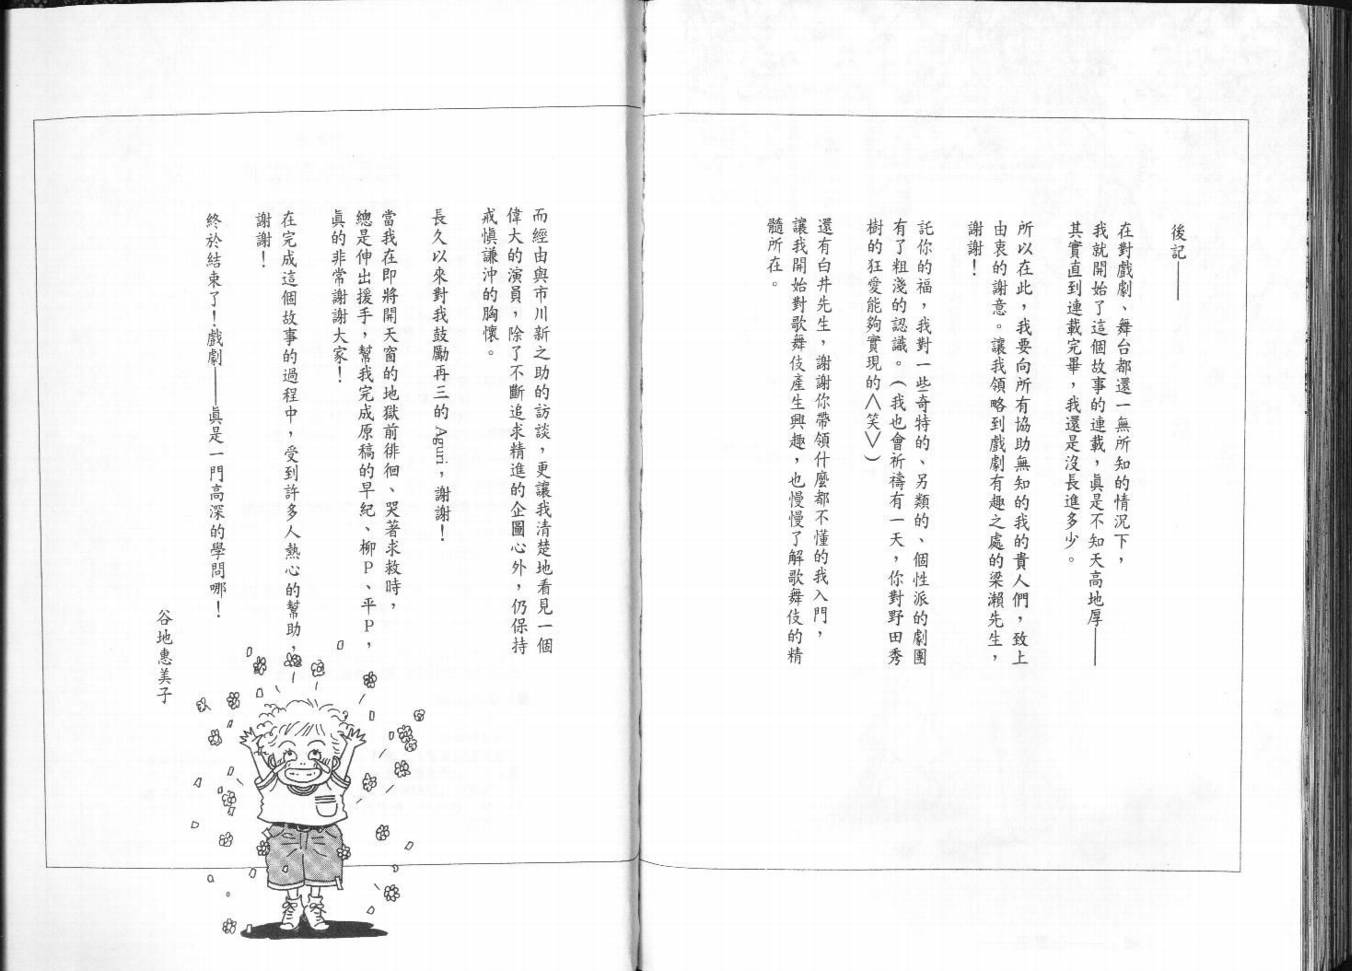 後記——
在對戲劇、舞台都還一無所知的情況下，
我就開始了這個故事的連載，眞是不知天高地厚——
其實直到連載完畢，我還是沒長進多少。
所以在此，我要向所有協助無知的我的貴人們，致上
由衷的謝意。讓我領略到戲劇有趣之處的梁瀨先生，
謝謝！
託你的福，我對一些奇特的、另類的、個性派的劇團
有了粗淺的認識。（我也會祈禱有一天，你對野田秀
樹的狂愛能夠實現的〈笑〉）
還有白井先生，謝謝你帶領什麼都不懂的我入門，
讓我開始對歌舞伎產生興趣，也慢慢了解歌舞伎的精
髓所在。
而經由與市川新之助的訪談，更讓我清楚地看見一個
偉大的演員，除了不斷追求精進的企圖心外，仍保持
戒愼謙沖的胸懷。
長久以來對我鼓勵再三的 Aguri，謝謝！
當我在即將開天窗的地獄前徘徊、哭著求救時，
總是伸出援手，幫我完成原稿的早紀、柳P、平P，
眞的非常謝謝大家！
在完成這個故事的過程中，受到許多人熱心的幫助，
謝謝！
終於結束了！戲劇——眞是一門高深的學問哪！
谷地惠美子